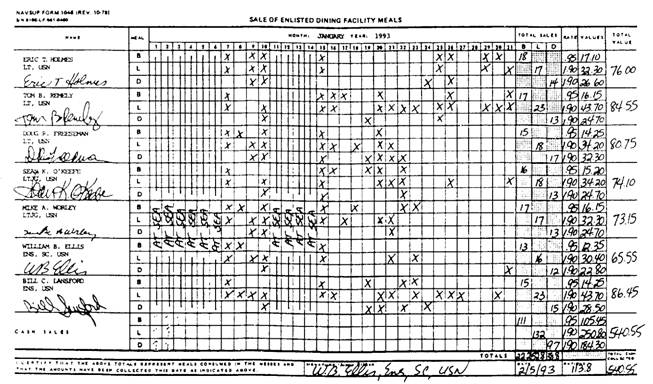 NAVSUP FORM 1046 (REV. 10-78)
SALE OF ENLISTED DINING FACILITY MEALS
MONTH: JANUARY YEAR: 1993
TOTAL SALES RATE VALUES TOTAL VALUE
NAME MEAL 1 2 3 4 5 6 7 8 9 10 11 12 13 14 15 16 17 18 19 20 21 22 23 24 25 26 27 28 29 30 31 B L D
ERIC T. HOLMES B 18 .95 17.10
LT, USN L 17 1.90 32.30 76.00
Eric T Holmes D 14 1.90 26.60
TOM B. REMELY B 17 .95 16.15
LT, USN L 23 1.90 43.70 84.55
D 13 1.90 24.70
DOUG R. FREESEMAN B 15 .95 14.25
LT, USN L 18 1.90 34.20 80.75
D 17 1.90 32.30
SEAN K. O'KEEFE B 16 .95 15.20
LTJG, USN L 18 1.90 34.20 74.10
D 13 1.90 24.70
MIKE A. WORLEY B 17 .95 16.15
LTJG, USN L 17 1.90 32.30 73.15
D 13 1.90 24.70
AT SEA AT SEA AT SEA AT SEA AT SEA AT SEA AT SEA AT SEA AT SEA AT SEA
WILLIAM B. ELLIS B 13 .95 12.35
ENS, SC, USN L 16 1.90 30.40 65.55
WB Ellis D 12 1.90 22.80
BILL C. LANSFORD B 15 .95 14.25
ENS, USN L 23 1.90 43.70 86.45
Bill Lansford D 15 1.90 28.50
B 111 .95 105.45
CASH SALES L 132 1.90 250.80 540.55
D 97 1.90 184.30
TOTALS
I CERTIFY THAT THE ABOVE TOTALS REPRESENT MEALS CONSUMED IN THE MESSES AND
THAT THE AMOUNTS HAVE BEEN COLLECTED THIS DATE AS INDICATED ABOVE.
W.B. Ellis, Ens, SC, USN 2/5/93 113.8 540.55